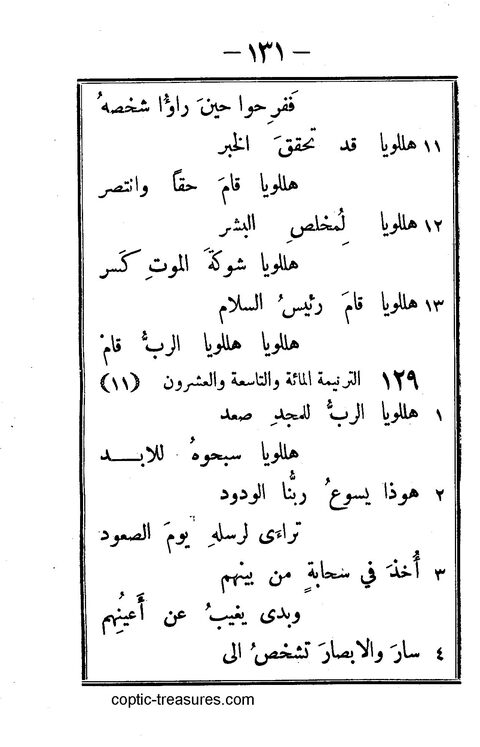 – ١٣١ –
ففرِحوا حينَ راوٴا شخصهُ
١١ هللويا قد تحققَ الخبر
هللويا قامَ حقاً وانتصر
١٢ هللويا لِمُخلصِ البشر
هللويا شوكةَ الموتِ كَسر
١٣ هللويا قامَ رئيسُ السلام
هللويا هللويا الربُّ قامْ
١٢٩ الترنيمة المائة والتاسعة والعشرون (١١)
١ هللويا الربُّ للمجدِ صعد
هللويا سبحوهُ للابـــد
٢ هوذا يسوعُ ربُّنا الودود
تراءَى لرسلهِ يومَ الصعود
٣ أُخذَ في سحابةٍ من بينهم
وبدى يغيبُ عن أَعينُهم
٤ سارَ والابصارَ تشخصُ الى
coptic-treasures.com